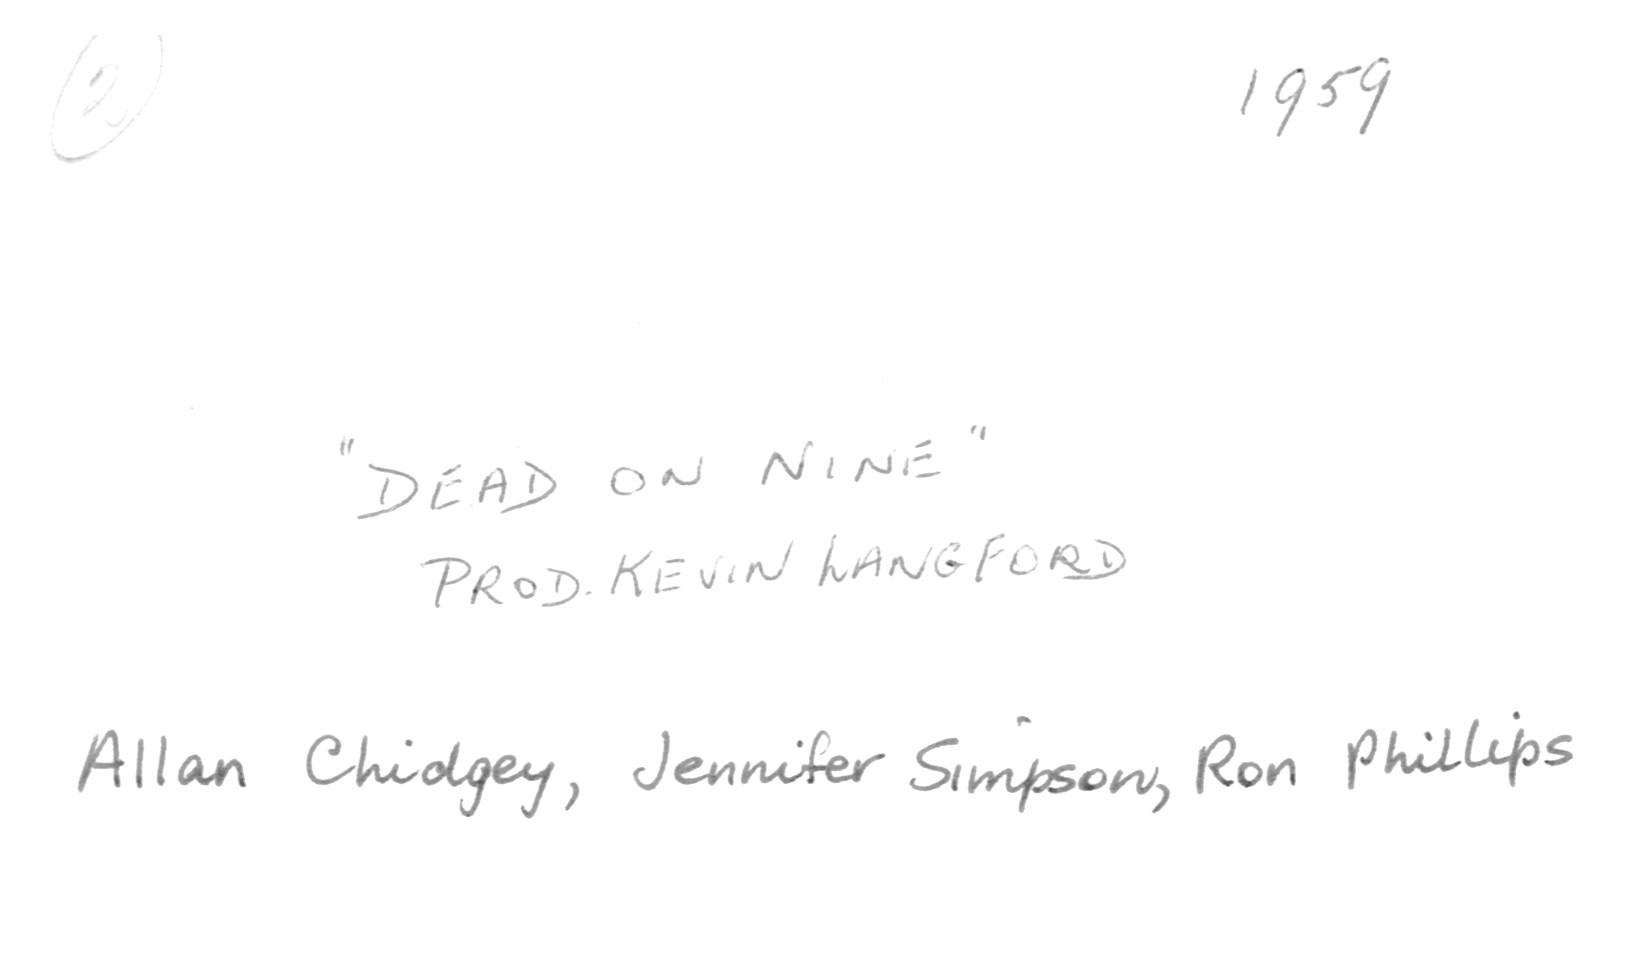 2
1959
"DEAD ON NINE"
PROD. KEVIN LANGFORD
Allan Chidgey, Jennifer Simpson, Ron Phillips